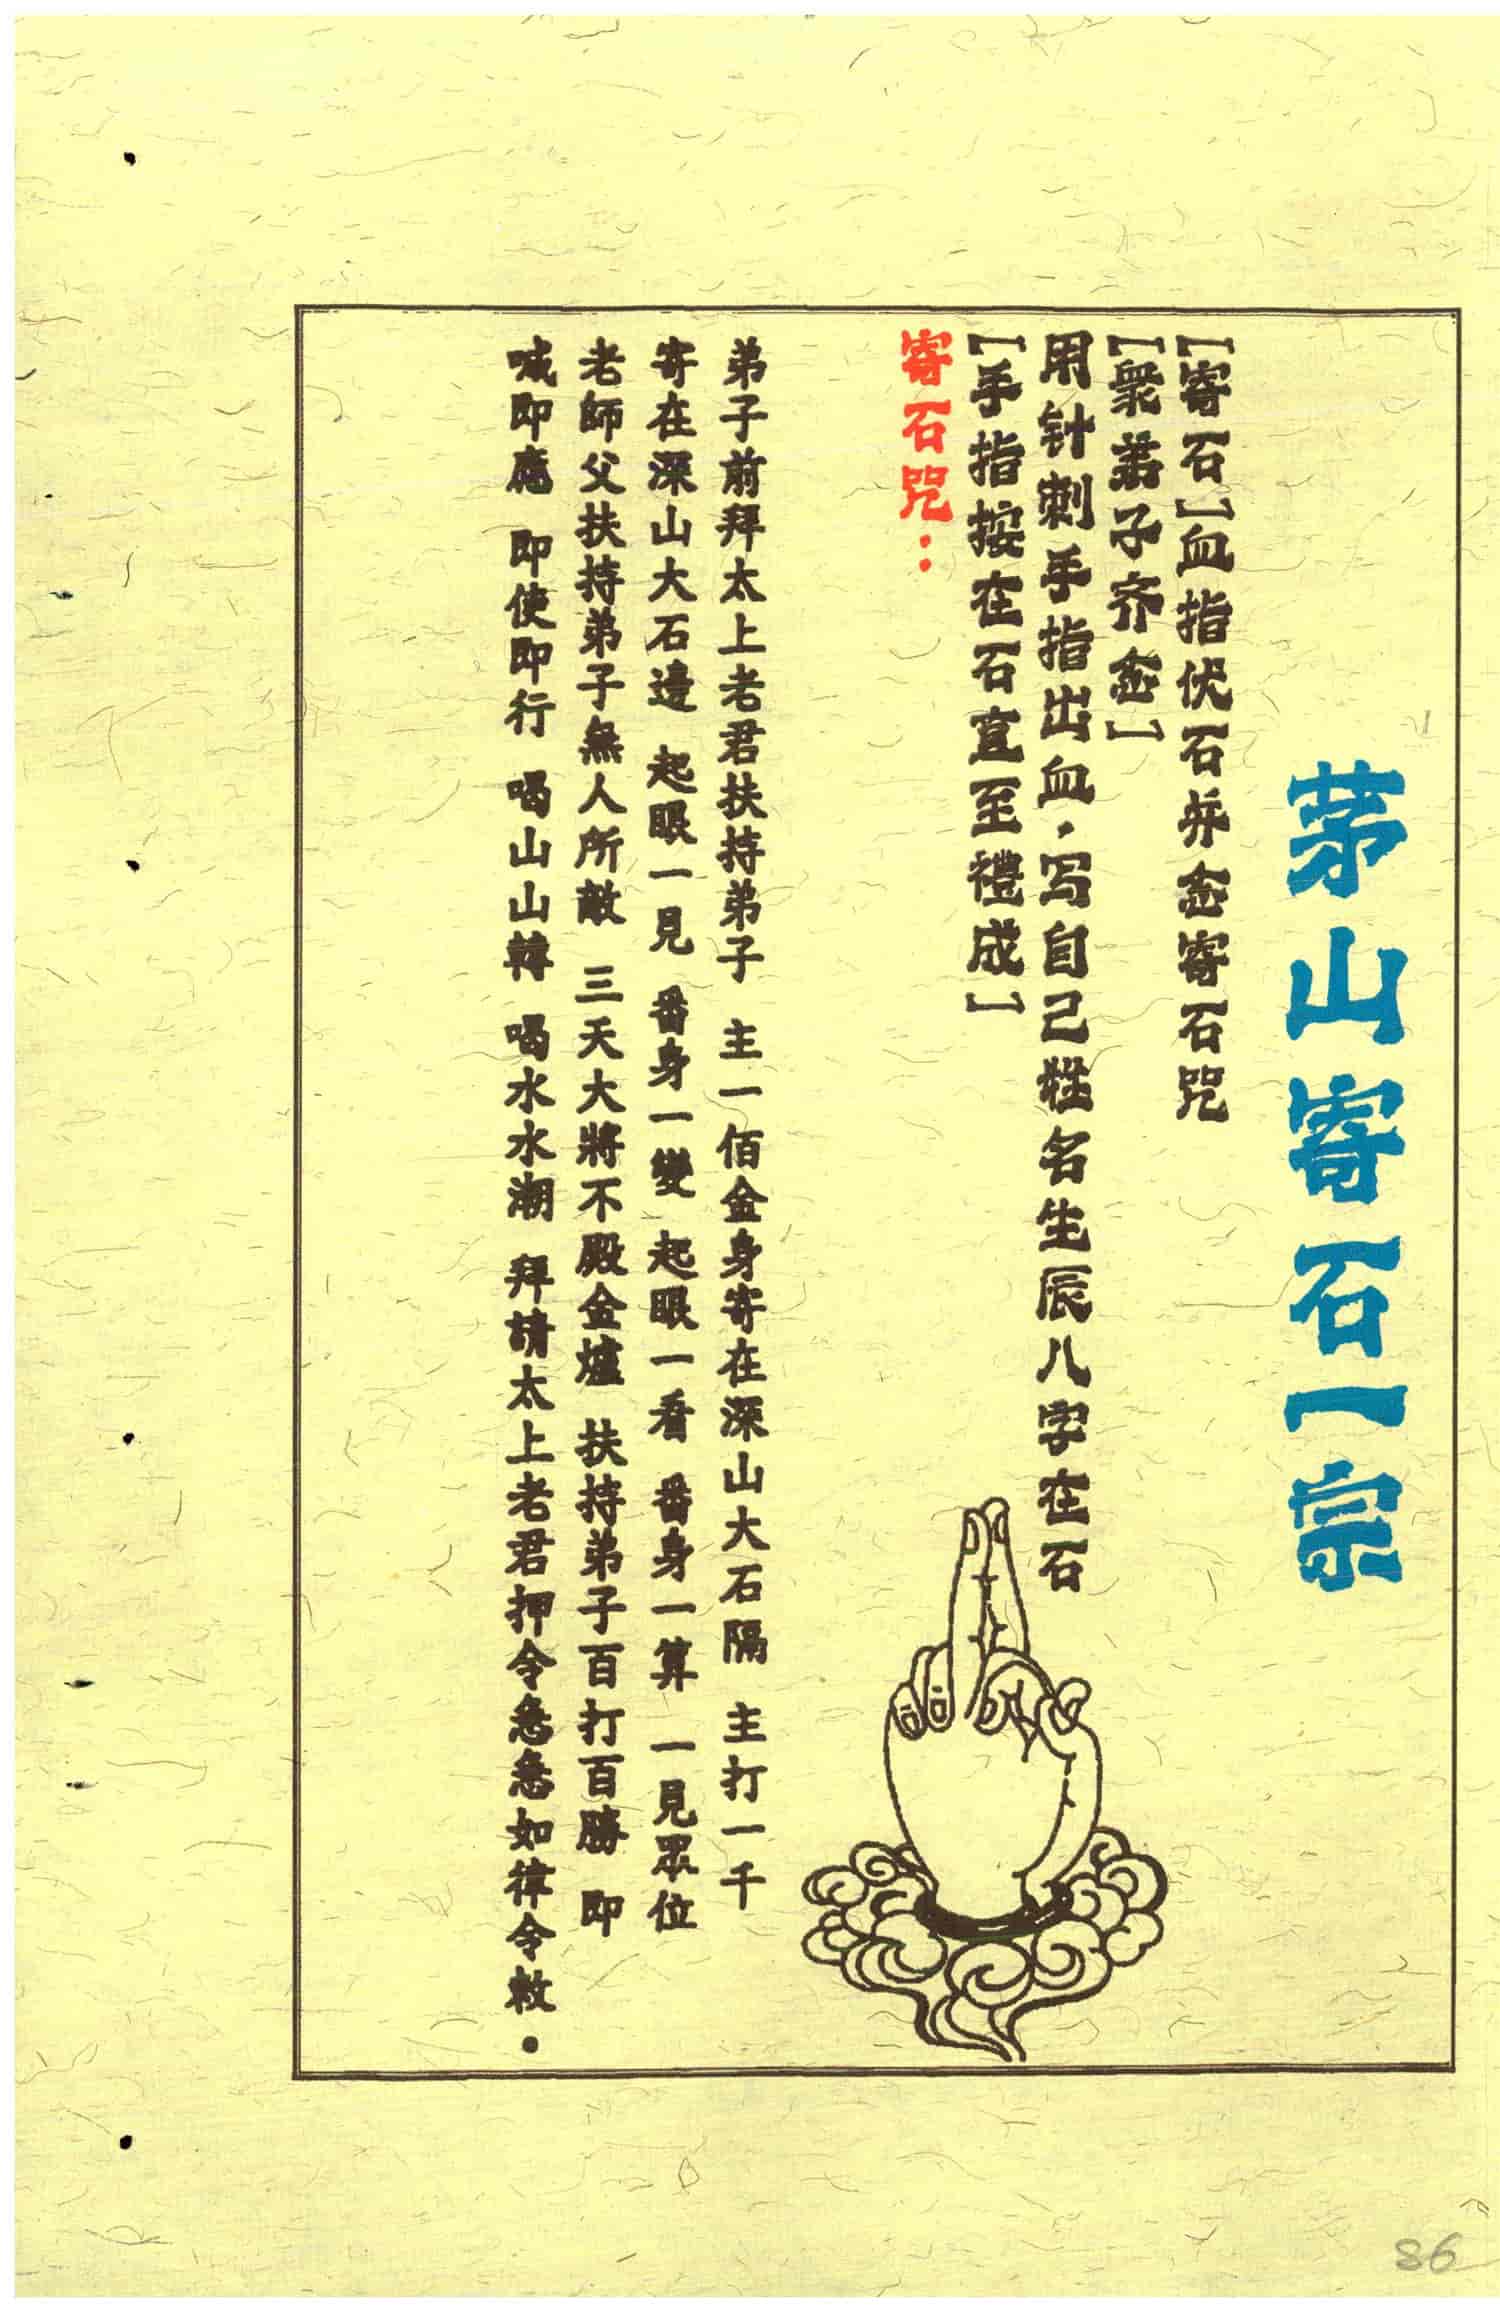 茅山寄石一宗
[寄石]血指伏石并念寄石咒
[衆弟子齐念]
用针刺手指出血,写自己姓名生辰八字在石
[手指按在石直至禮成]
寄石咒：
弟子前拜太上老君扶持弟子 主一佰金身寄在深山大石隔 主打一千
寄在深山大石邊 起眼一見 番身一變 起眼一看 番身一算 一見眾位
老師父扶持弟子無人所敵 三天大將不殿金爐 扶持弟子百打百勝 即
喊即應 即使即行 喝山山轉 喝水水潮 拜請太上老君押令急急如律令敕.
86